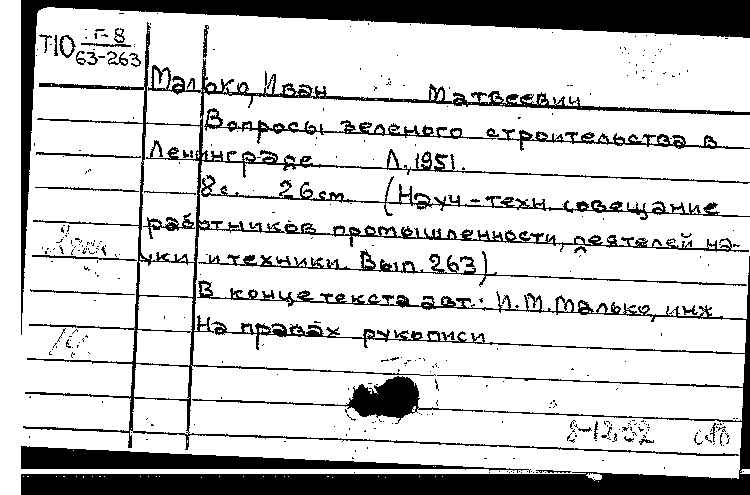 Т10 Г-8
63-263
Малько, Иван Матвеевич
Вопросы зеленого строительства в
Ленинграде Л., 1951.
8 с. 26 см. (Науч-техн. совещание
работников промышленности, деятелей на-
уки и техники. Вып. 263).
В конце текста авт.: И.М. Малько, инж.
На правах рукописи.